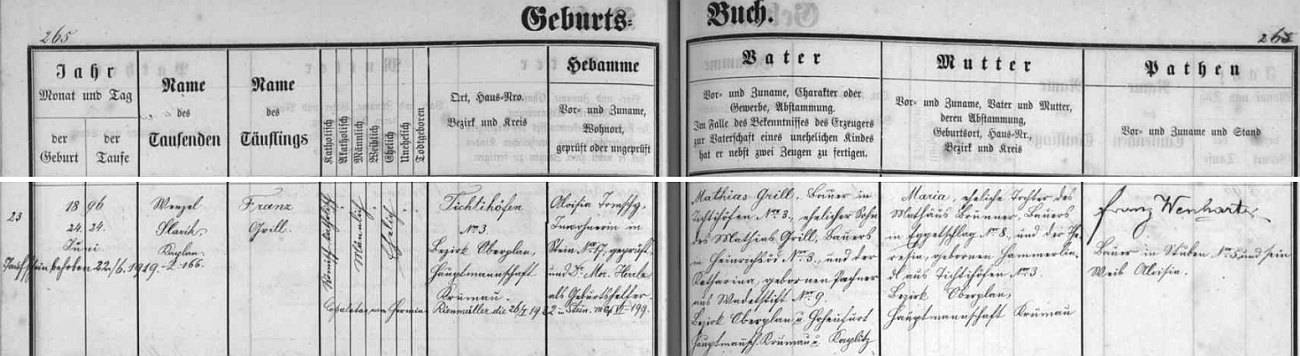 Geburts-
Buch.
265
265
Jahr
Monat und Tag
der Geburt
der Taufe
Name
des
Taufenden
Name
des
Täuflings
Katholisch
Akatholisch
Männlich
Weiblich
Ehelich
Unehelich
Todtgeboren
Ort, Haus-Nro.
Bezirk und Kreis
Hebamme
Vor- und Zuname,
Wohnort,
geprüft oder ungeprüft
Vater
Vor- und Zuname, Charakter oder
Gewerbe, Abstammung.
Im Falle des Bekenntnisses des Erzeugers
zur Vaterschaft eines unehelichen Kindes
hat er nebst zwei Zeugen zu fertigen.
Mutter
Vor- und Zuname, Vater und Mutter,
deren Abstammung,
Geburtsort, Haus-Nr.,
Bezirk und Kreis
Pathen
Vor- und Zuname und Stand
23
18 96
24. 24.
Juni
Wenzel
Slavik,
Kaplan.
Franz
Grill.
Römisch katholisch
Männlich
Ehelich
Tichtihöfen
No 3.
Bezirk Oberplan,
Hauptmannschaft
Krumau.
Aloisia
in
Stein No 17, geprüft,
und Dr.
als Geburtshelfer.
Mathias Grill, Bauer in
Tichtihöfen No 3, ehelicher Sohn
des Mathias Grill, Bauers
in Heinrichsöd No 3, und der
Katharina, gebornen Pachner
aus Wadetstift No 9.
Bezirk Oberplan u. Hohenfurt
Hauptmannsch. Krumau u. Kaplitz
Maria, eheliche Tochter des
Mathäus Brunner, Bauers
in Eggetschlag No 8, und der The-
resia, gebornen Hammerlin-
dl aus Tichtihöfen No 3.
Bezirk Oberplan,
Hauptmannschaft Krumau
Franz Wenharter
Bauer in Stuben No 5 und sein
Weib Aloisia.
Taufschein behoben 22./6. 1919. - Z. 166.